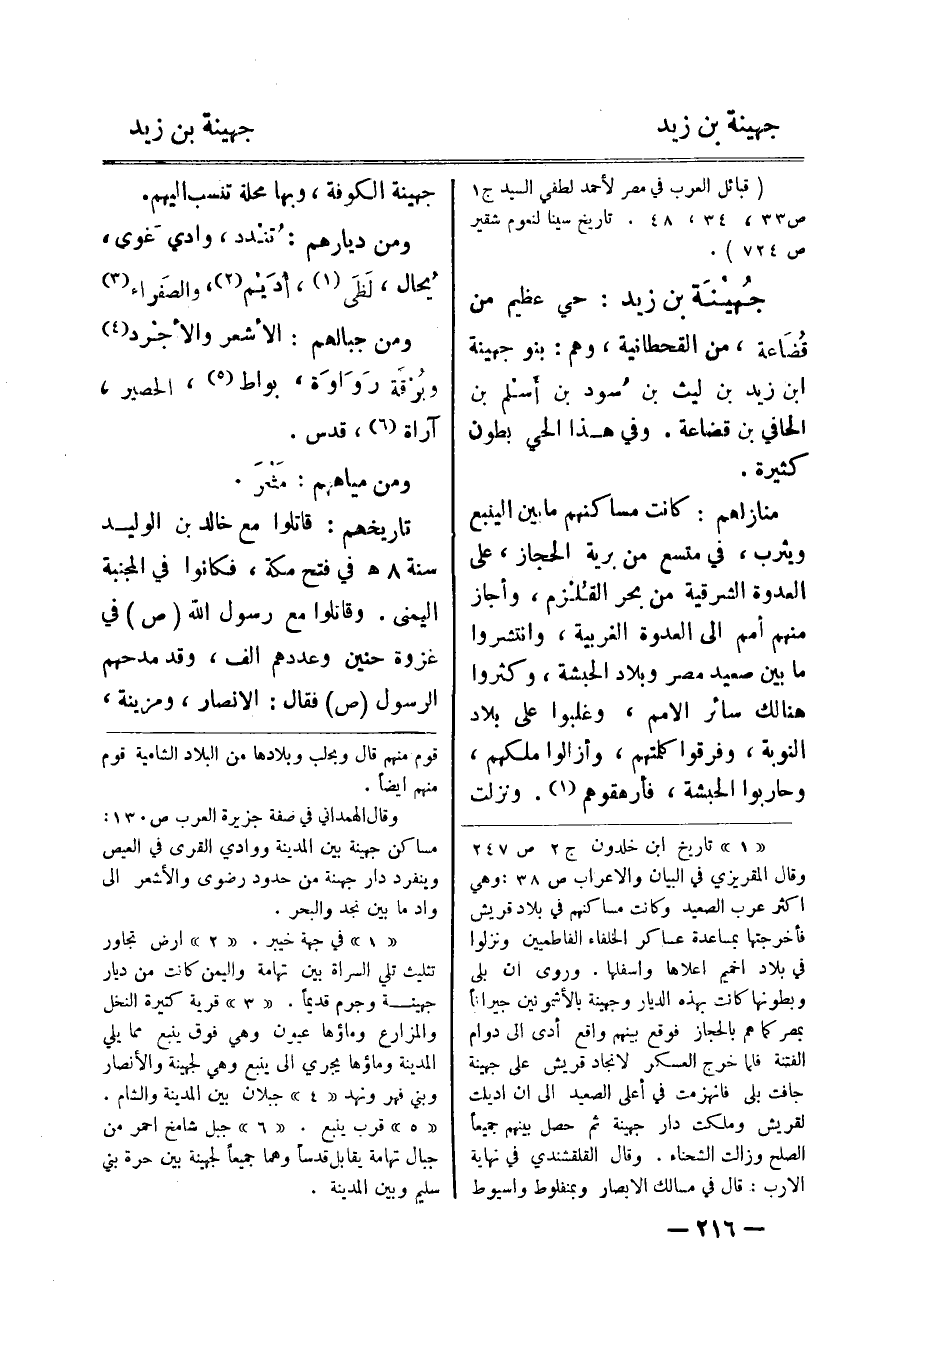 جهينة بن زيد
جهينة بن زيد
( قبائل العرب في مصر لأحمد لطفي السيد ج١
ص٣٣ ، ٣٤ ، ٤٨ . تاريخ سينا لنعوم شقير
ص ٧٢٤ ) .
جُهَيْنَة بن زيد : حي عظيم من
قُضَاعة ، من القحطانية ، وهم : بنو جهينة
ابن زيد بن ليث بن سُود بن أسْلم بن
الحافي بن قضاعة . وفي هـذا الحي بطون
كثيرة .
منازلهم : كانت مساكنهم مابين الينبع
ويثرب ، في متسع من برية الحجاز ، على
العدوة الشرقية من بحر القُلْزم ، وأجاز
منهم أمم الى العدوة الغربية ، وانتشروا
ما بين صعيد مصر وبلاد الحبشة ، وكثروا
هنالك سائر الامم ، وغلبوا على بلاد
النوبة ، وفرقوا كلمتهم ، وأزالوا ملكهم ،
وحاربوا الحبشة ، فأرهقوهم (١) . ونزلت
« ١ » تاريخ ابن خلدون ج ٢ ص ٢٤٧
وقال المقريزي في البيان والاعراب ص ٣٨ : وهي
اكثر عرب الصعيد وكانت مساكنهم في بلاد قريش
فأخرجتها بمساعدة عساكر الخلفاء الفاطميين ونزلوا
في بلاد اخميم اعلاها واسفلها . وروى ان بلى
وبطونها كانت بهذه الديار وجهينة بالأشمونين جيراناً
بمصر كما هم بالحجاز فوقع بينهم واقع أدى الى دوام
الفتنة فلما خرج العسكر لانجاد قريش على جهينة
خافت بلى فانهزمت في أعلى الصعيد الى ان اديلت
لقريش وملكت دار جهينة ثم حصل بينهم جميعاً
الصلح وزالت الشحناء . وقال القلقشندي في نهاية
الارب : قال في مسالك الابصار وبمنفلوط واسيوط
جهينة الكوفة ، وبها محلة تنسب اليهم.
ومن ديارهم : تُنْدد ، وادي غَوى ،
يُحال ، لَظَى (١) ، أدَيْم(٢)، والصَفراء(٣)
ومن جبالهم : الأشعر والأجْرد(٤)
وبُرْقَة رَوَاوَة ، بواط (٥) ، الحصير ،
آراة (٦) ، قدس .
ومن مياههم : مَثْعَر .
تاريخهم : قاتلوا مع خالد بن الوليـد
سنة ٨ ه في فتح مكة ، فكانوا في المجنبة
اليمنى . وقاتلوا مع رسول الله ( ص ) في
غزوة حنين وعددهم الف ، وقد مدحهم
الرسول (ص) فقال : الانصار ، ومزينة ،
قوم منهم قال وبحلب وبلادها من البلاد الشامية قوم
منهم ايضاً .
وقال الهمداني في صفة جزيرة العرب ص١٣٠ :
مساكن جهينة بين المدينة ووادي القرى في العيص
وينفرد دار جهنة من حدود رضوى والأشعر الى
واد ما بين نجد والبحر .
« ١ » في جهة خيبر . « ٢ » ارض تجاور
تثليث تلي السراة بين تهامة واليمن كانت من ديار
جهينـــة وجرم قديماً . « ٣ » قرية كثيرة النخل
والمزارع وماؤها عيون وهي فوق ينبع مما يلي
المدينة وماؤها يجري الى ينبع وهي لجهينة والأنصار
وبني فهر ونهد « ٤ » جبلان بين المدينة والشام .
« ٥ » قرب ينبع . « ٦ » جبل شامخ احمر من
جبال تهامة يقابل قدساً وهما جميعاً لجهينة بين حرة بني
سليم وبين المدينة .
— ٢١٦ —